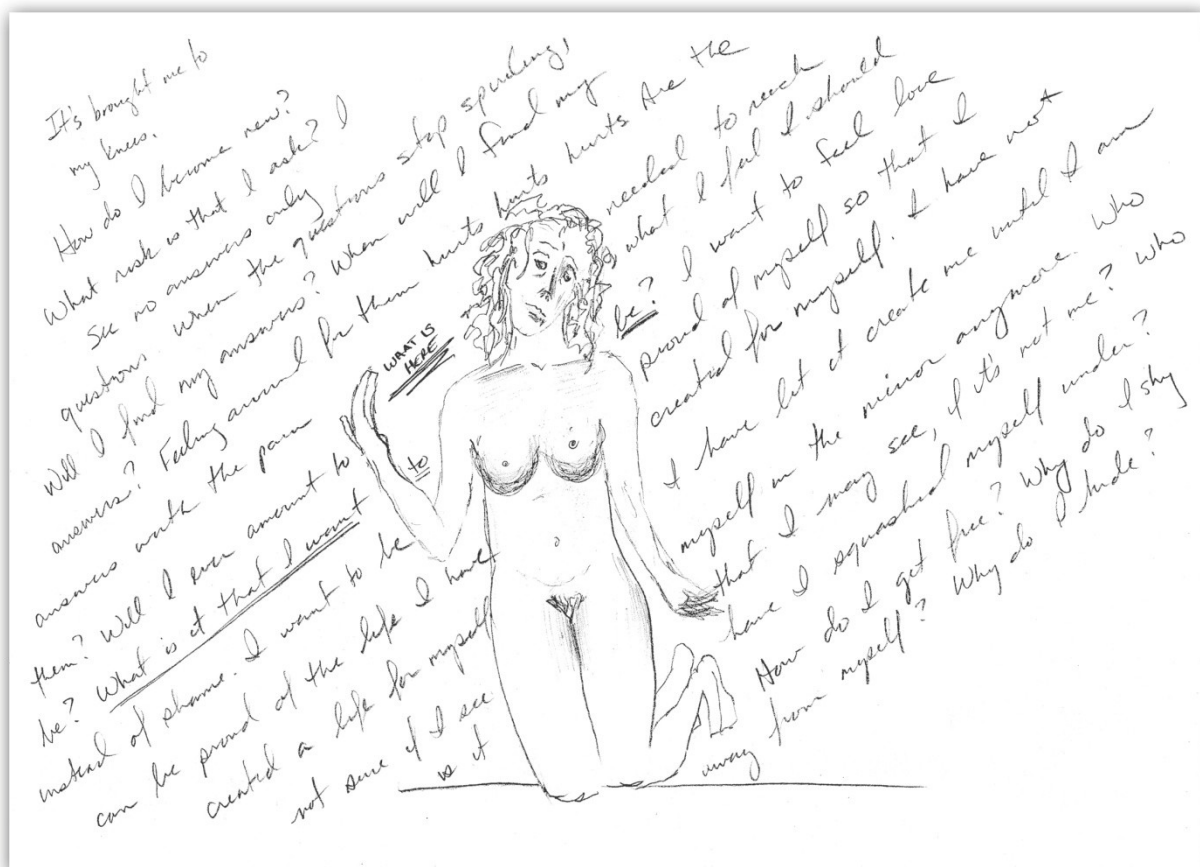 It's brought me to
my knees.
How do I become new?
What risk is that I ask? I
see no answers only
questions. When the questions stop
Will I find my answers? When will I find my
answers? Feeling around for them hurts hurts hurts hurts Are the
answers worth the pain needed to reach
WHAT IS
HERE
them? Will I ever amount to what I feel I should
be? What is it that I want to be? I want to feel love
instead of shame. I want to be proud of myself so that I
can be proud of the life I have created for myself. I have not
created a life for myself I have let it create me until I am
not sure if I see myself in the mirror anymore. Who
is it that I may see, if it's not me? Who
have I squashed myself under?
How do I get free? Why do I shy
away from myself? Why do I hide?